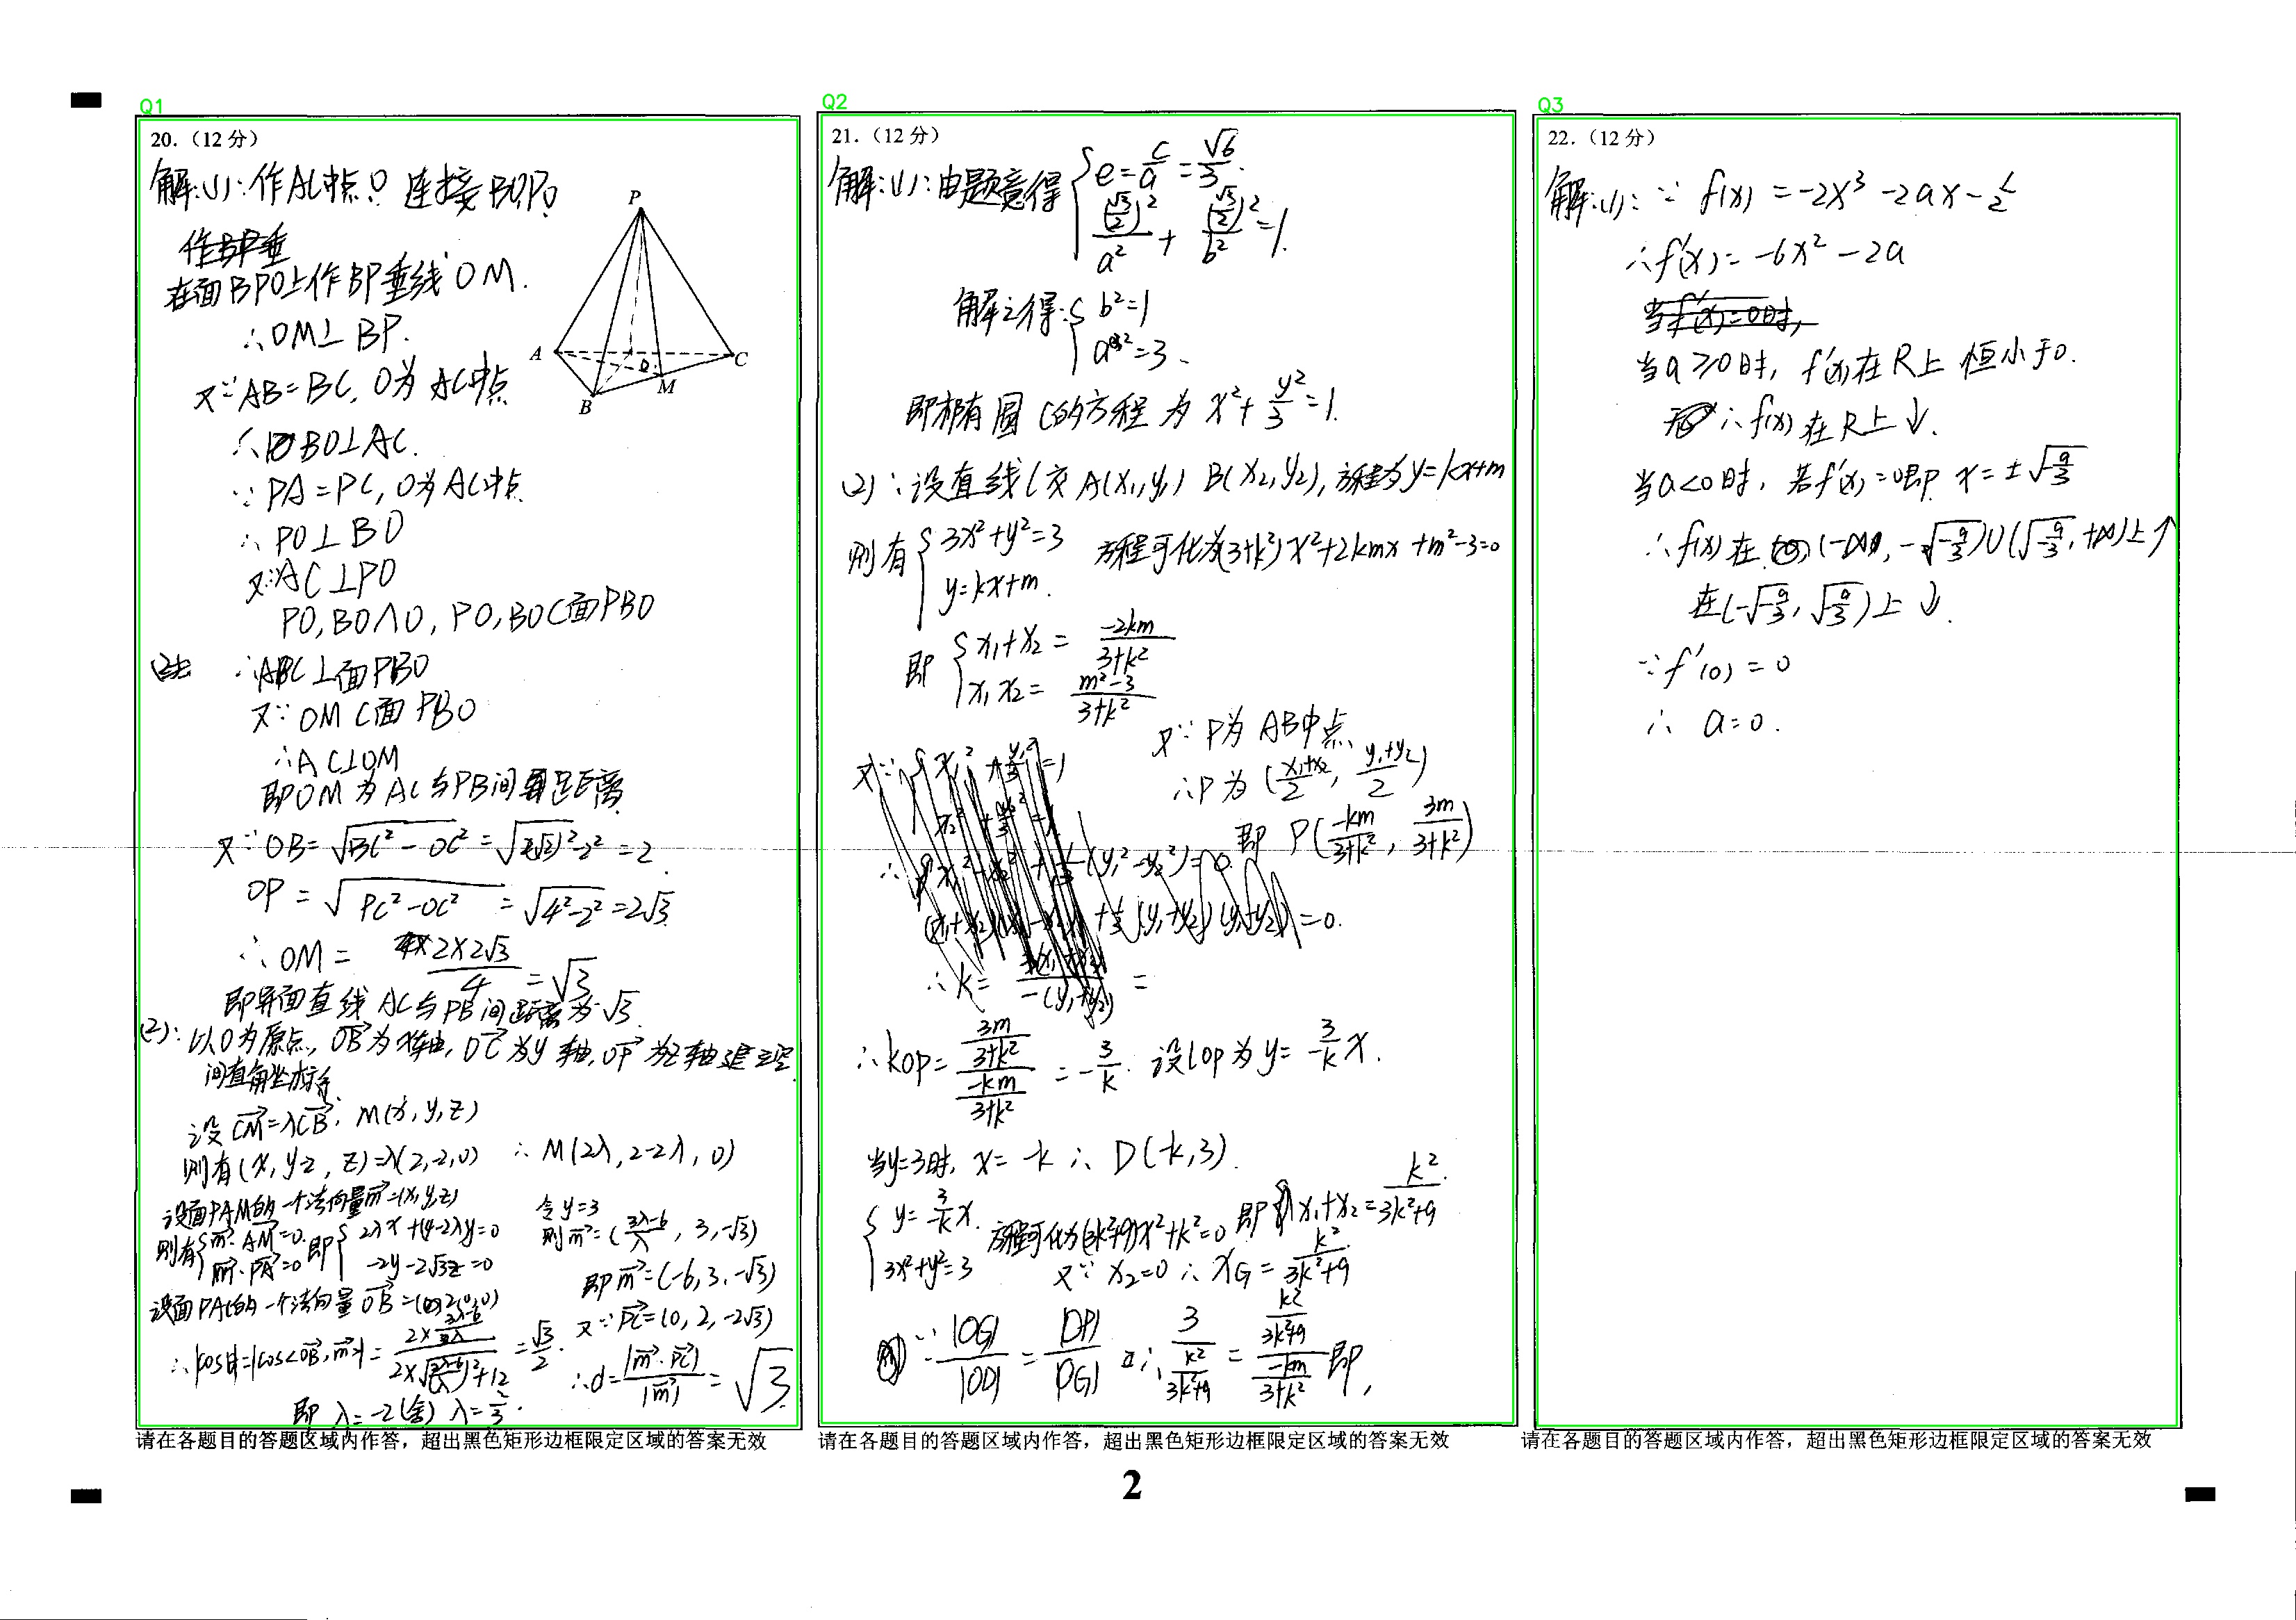 Q1
20.（12分）
解:(1):作AC中点O 连接BO,PO
在面BPO上作BP垂线OM.
∴OM⊥BP.
又∵AB=BC, O为AC中点
∴BO⊥AC.
∵PA=PC, O为AC中点
∴PO⊥BO
又∵AC⊥PO
PO,BO∩O, PO,BO⊂面PBO
∴AC⊥面PBO
又∵OM⊂面PBO
∴AC⊥OM
即OM为AC与PB间距离
又∵OB=√(BC²-OC²)=√((2√2)²-2²)=2
OP=√(PC²-OC²)=√(4²-2²)=2√3
∴OM=(2×2√3)/4=√3
即异面直线AC与PB间距离为√3.
(2):以O为原点, OB为x轴, OC为y轴, OP为z轴建立空
间直角坐标系
设CM=λCB, M(x,y,z)
则有(x,y-2,z)=λ(2,-2,0) ∴M(2λ,2-2λ,0)
设面PAM的一个法向量m=(x,y,z)
则有{m·AM=0. m·PA=0 即{2λx+(4-2λ)y=0 -2y-2√3z=0
令y=3
则m=((3λ-6)/λ, 3, -√3)
即m=(-6,3,-√3)
设面PAC的一个法向量OB=(2,0,0)
又∵PC=(0,2,-2√3)
∴|cosθ|=|cos<OB,m>|= =√3/2.
∴d=|m·PC|/|m|=√3.
即λ=-2(舍) λ=2/3.
P
A
O
C
B
M
请在各题目的答题区域内作答，超出黑色矩形边框限定区域的答案无效
Q2
21.（12分）
解:(1):由题意得{e=c/a=√6/3. (√3/2)²/a²+(√3/2)²/b²=1.
解之得:{b²=1 a²=3.
即椭圆C的方程为x²+y²/3=1.
(2):设直线l交A(x₁,y₁) B(x₂,y₂),方程为y=kx+m
则有{3x²+y²=3 y=kx+m. 方程可化为(3+k²)x²+2kmx+m²-3=0
即{x₁+x₂=-2km/(3+k²) x₁x₂=(m²-3)/(3+k²)
又∵P为AB中点
∴P为((x₁+x₂)/2, (y₁+y₂)/2)
即P(-km/(3+k²), 3m/(3+k²))
∴kOP=(3m/(3+k²))/(-km/(3+k²))=-3/k. 设lOP为y=3/-k x.
当y=3时, x=-k ∴D(-k,3).
{y=3/-k x. 3x²+y²=3 方程可化为(3k²+9)x²+k²=0 即x₁+x₂=k²/(3k²+9).
又∵x₂=0 ∴xG=k²/(3k²+9)
∵|OG|/|OD|=|DP|/|PG| ∴3/(k²/(3k²+9))=(k²/(3k²+9))/(-km/(3+k²)) 即,
请在各题目的答题区域内作答，超出黑色矩形边框限定区域的答案无效
2
Q3
22.（12分）
解:(1):∵f(x)=-2x³-2ax-1/2
∴f'(x)=-6x²-2a
当f'(x)=0时,
当a≥0时, f'(x)在R上恒小于0.
∴f(x)在R上↓.
当a<0时, 若f'(x)=0即x=±√(-a/3)
∴f(x)在(-∞,-√(-a/3))∪(√(-a/3),+∞)上↑
在(-√(-a/3),√(-a/3))上↓.
∵f'(0)=0
∴a=0.
请在各题目的答题区域内作答，超出黑色矩形边框限定区域的答案无效